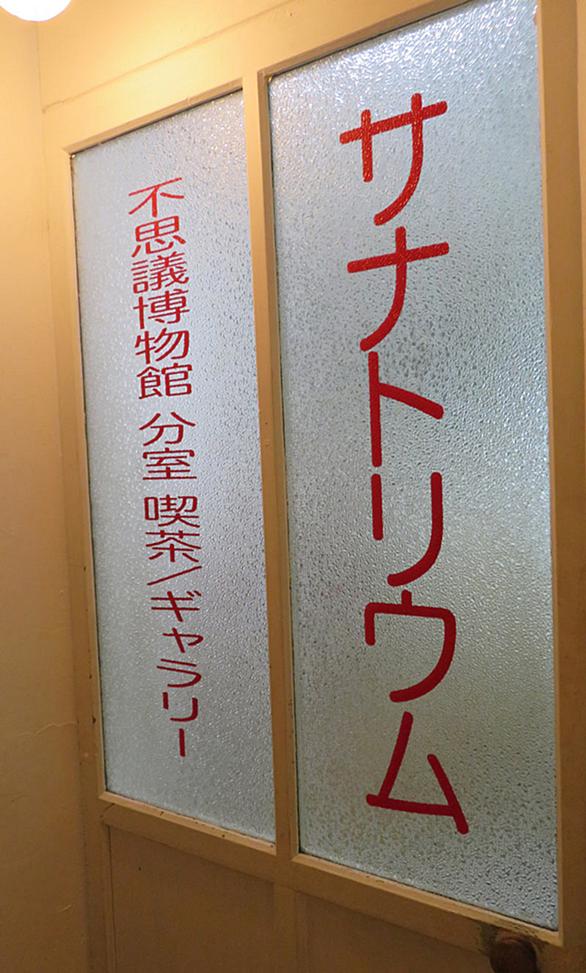 サナトリウム
不思議博物館 分室 喫茶/ギャラリー